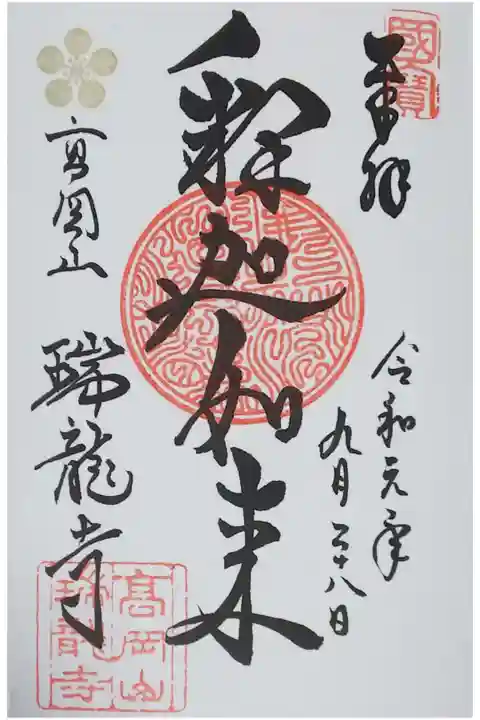 國寶
奉拝
令和元年
九月二十八日
釈迦如来
高岡山
瑞龍寺
高岡山
瑞龍寺